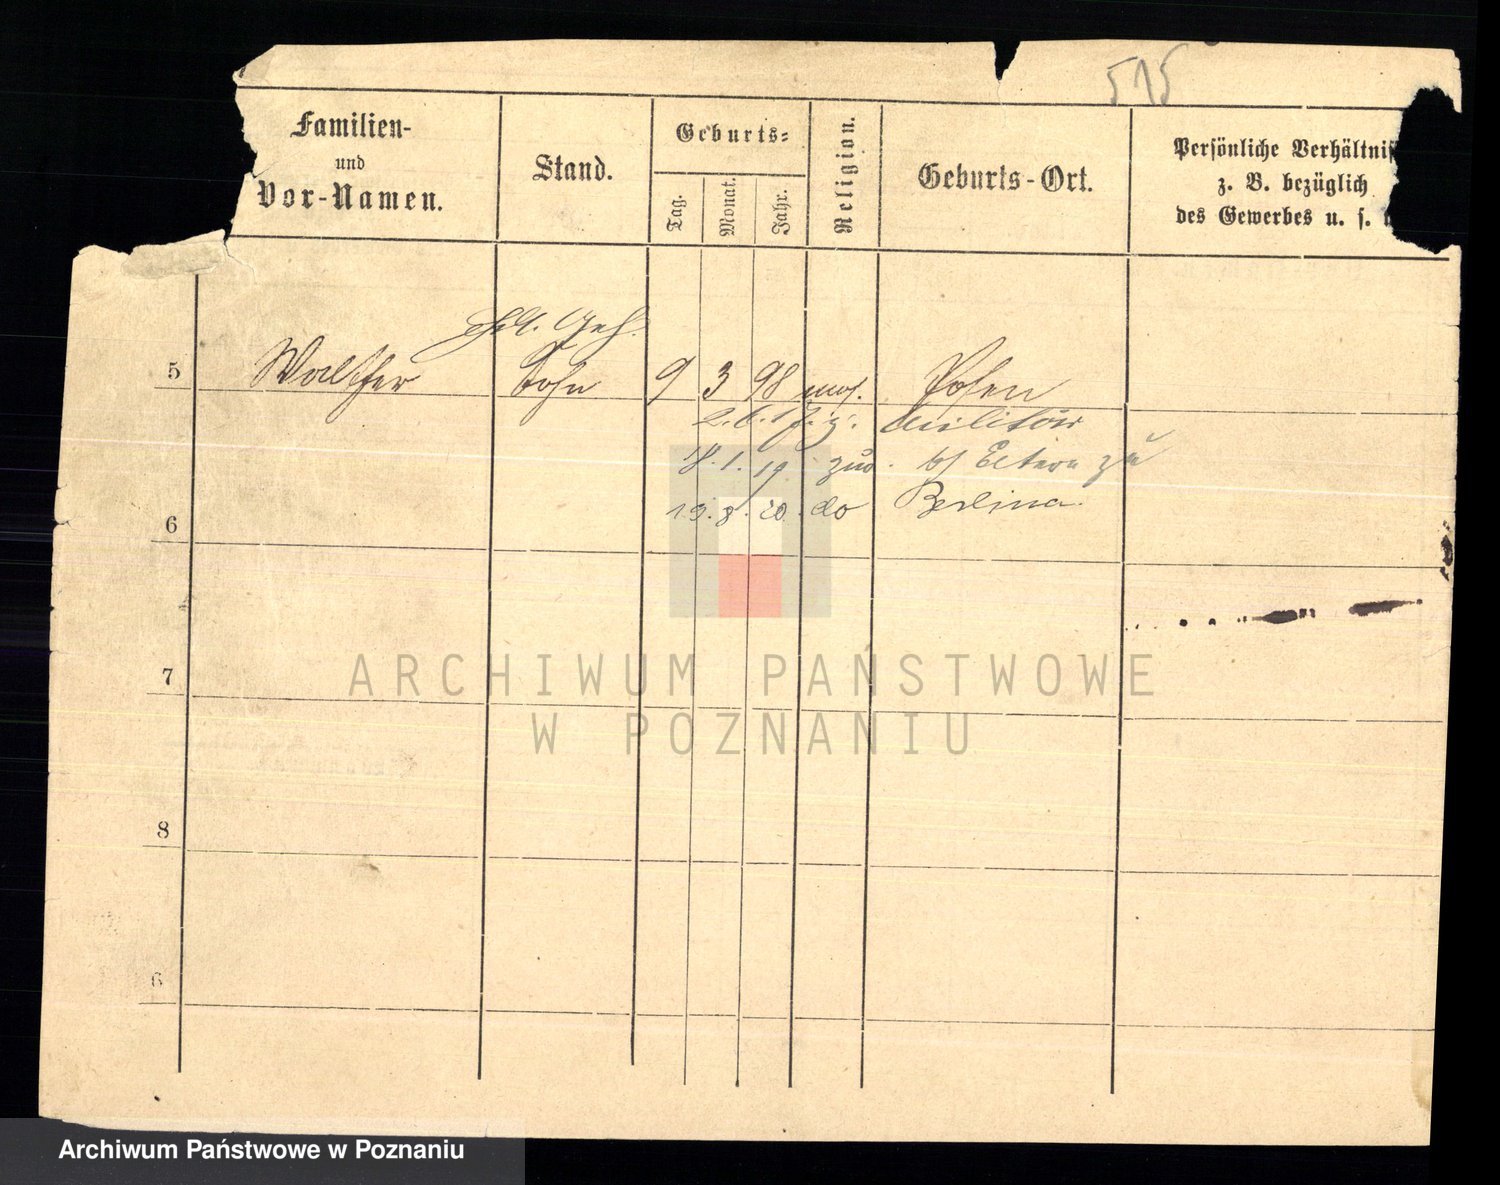 515
Familien-
und
Vor-Namen.
Stand.
Geburts-
Tag.
Monat.
Jahr.
Religion.
Geburts-Ort.
Persönliche Verhältnis
z. B. bezüglich
des Gewerbes u. s.
Hdl. Geh.
5 Walther Sohn 9 3 98 mos. Posen
2. 6. 17. z. Militär
18. 1. 19 zur. bf Eltern zu
6 19. 8. 20. do Berlin
7
8
6
ARCHIWUM PAŃSTWOWE
W POZNANIU
Archiwum Państwowe w Poznaniu